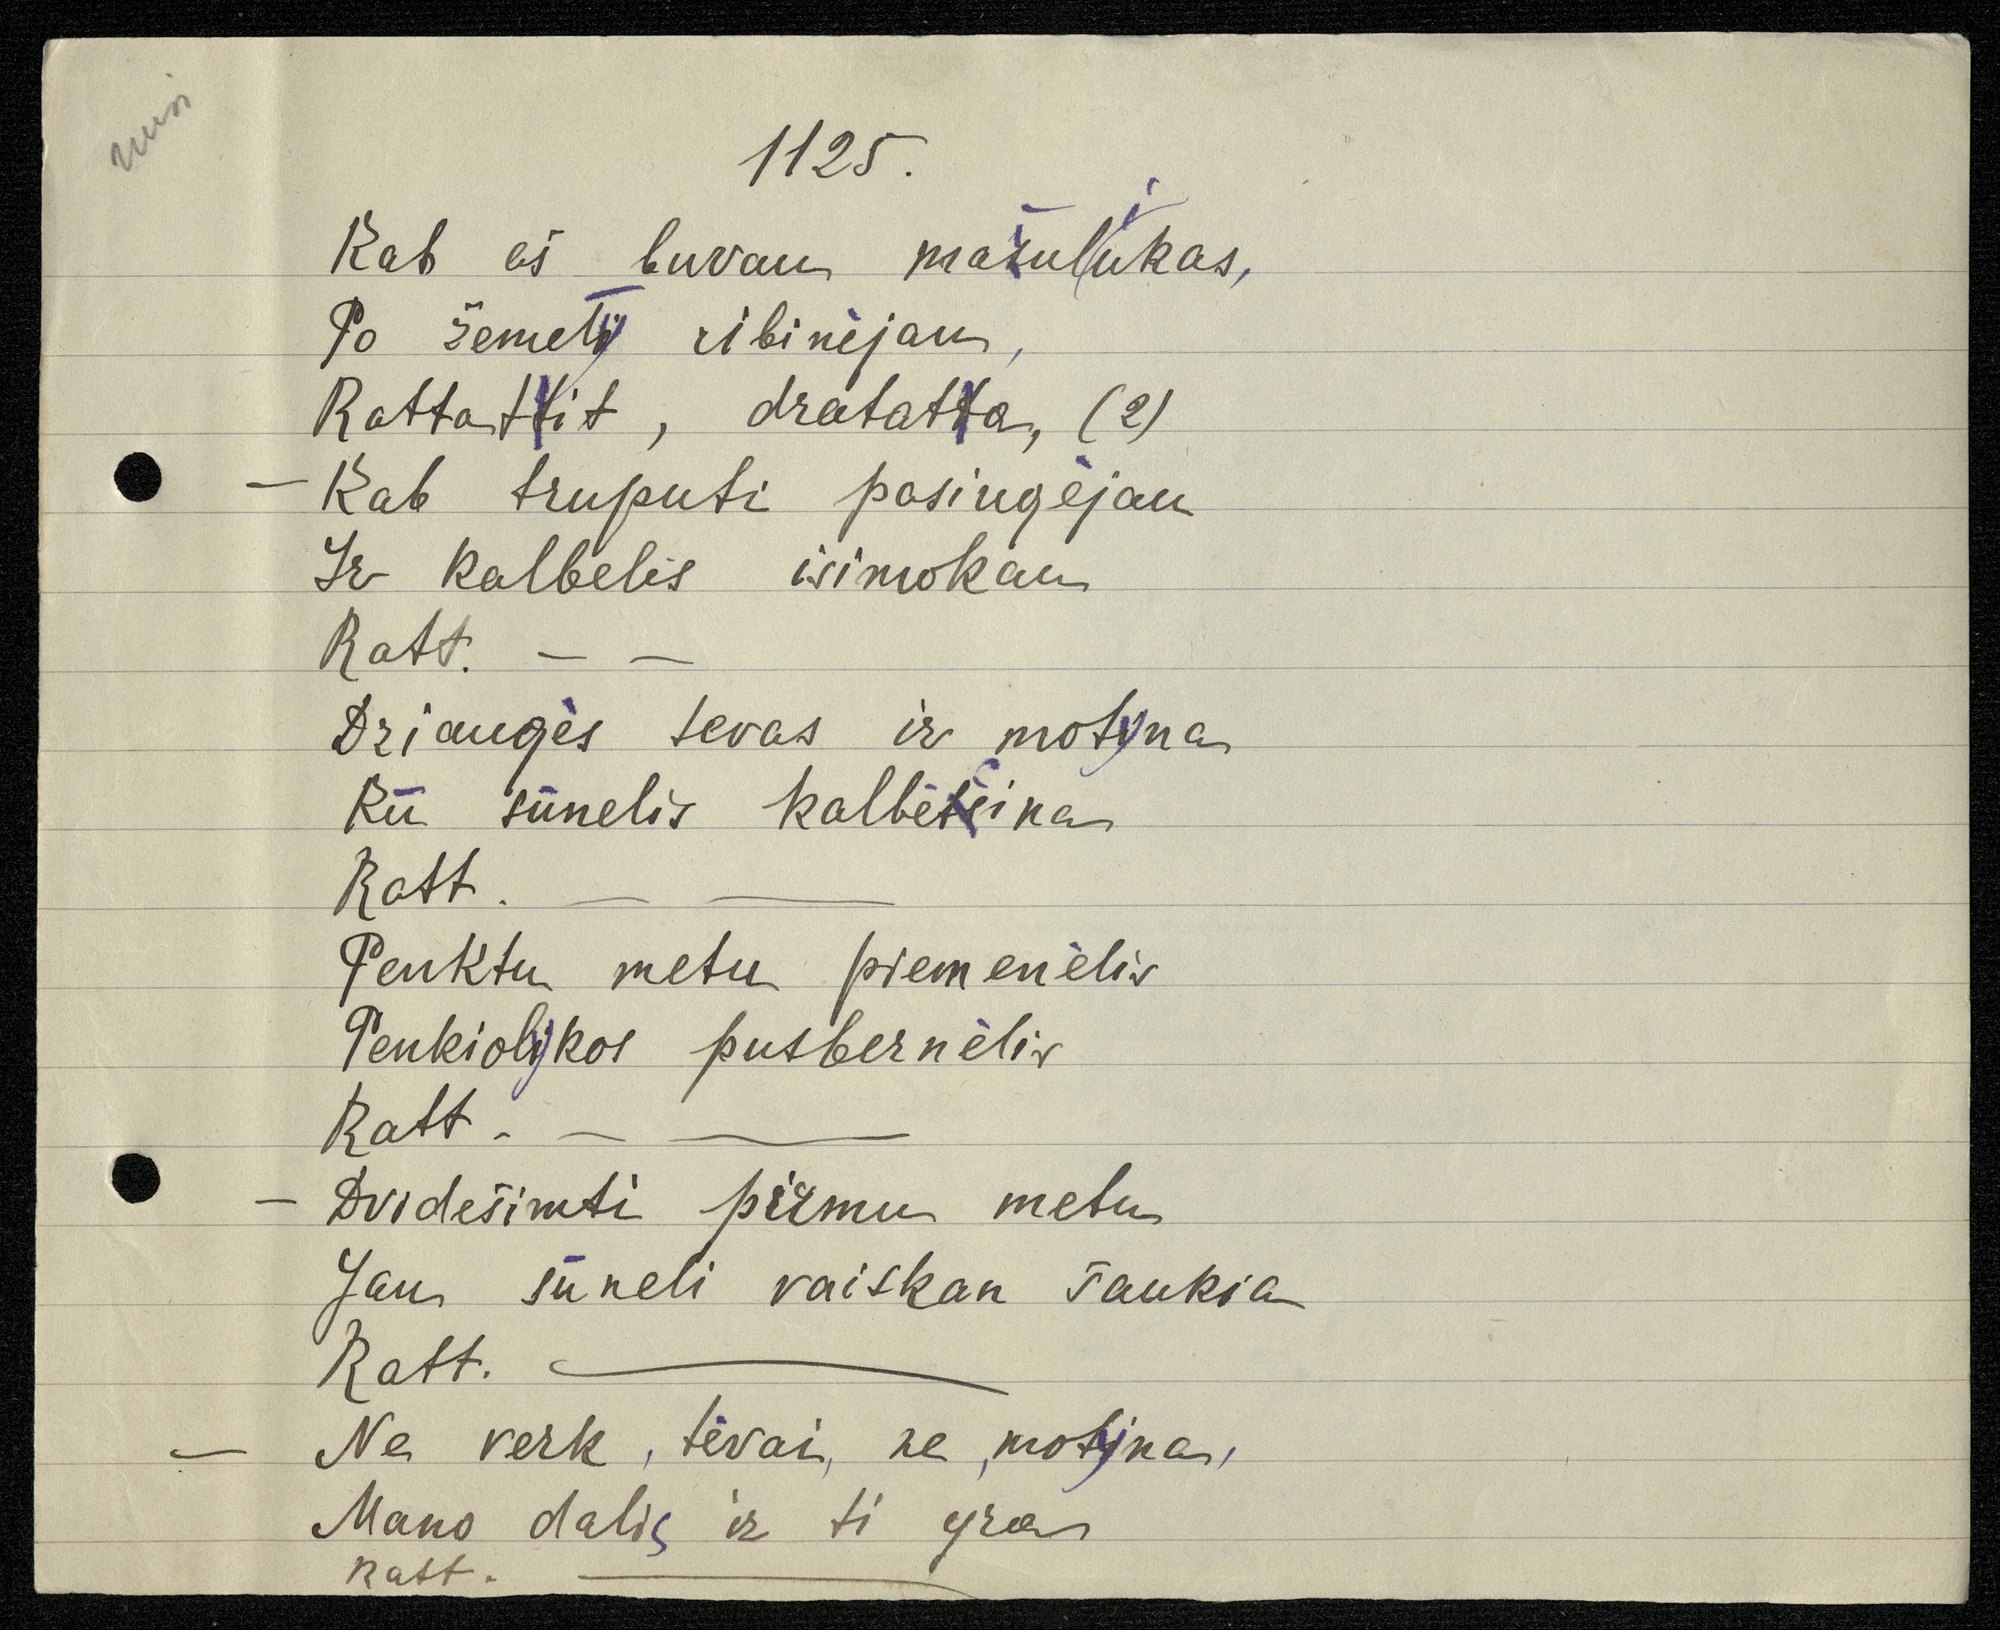 1125.
Kab aš buvau mažuliukas,
Po žemely ribinėjau,
Rattattit, dratatta, (2)
– Kab truputi pasiugėjau
Ir kalbelis isimokau
Ratt. – –
Dziaugės tevas ir motyna
Kū sūnelis kalbėt eina
Ratt. – –
Penktu metu piemenėlis
Penkiolykos pusbernėlis
Ratt. – –
– Dvidešimti pirmu metu
Jau sūneli vaiskan šaukia
Ratt. –
– Ne verk, tėvai, ne, motyna,
Mano dalis ir ti yra
Ratt. –